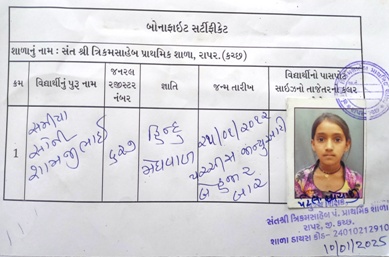 બોનાફાઇટ સર્ટીફીકેટ
શાળાનું નામ : સંત શ્રી ત્રિકમસાહેબ પ્રાથમિક શાળા, રાપર.(કચ્છ)
ક્રમ વિદ્યાર્થીનું પુરૂ નામ જનરલ રજીસ્ટર નંબર જ્ઞાતિ જન્મ તારીખ વિદ્યાર્થીનો પાસપોર્ટ સાઇઝનો તાજેતરનો કલર
1
હિન્દુ
મેઘવાળ
૨૫/૦૧/૨૦૧૨
પચ્ચીસ જાન્યુઆરી
બે હજાર
બાર
સંતશ્રી ત્રિકમસાહેબ પં. પ્રાથમિક શાળા
રાપર, જી. કચ્છ.
શાળા ડાયસ કોડ- 24010212910
10/01/2025